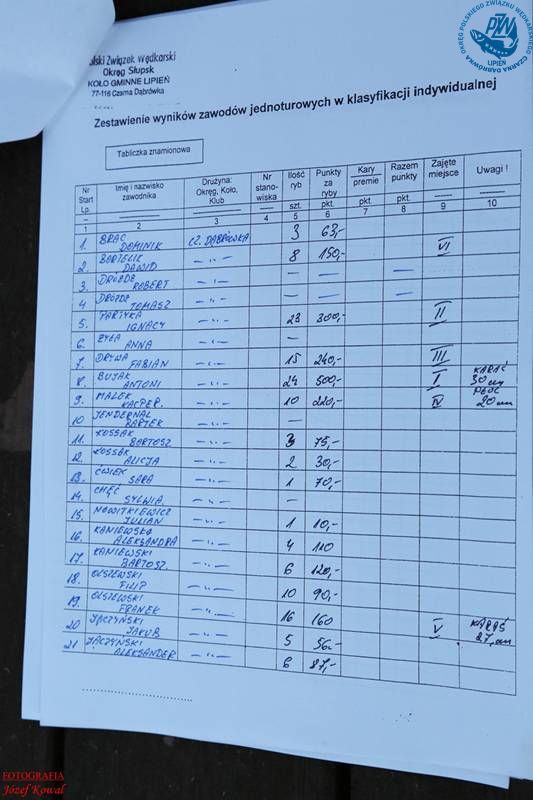 OKRĘG POLSKIEGO ZWIĄZKU WĘDKARSKIEGO
PZW
LIPIEŃ
CZARNA DĄBRÓWKA
lski Związek Wędkarski
Okręg Słupsk
KOŁO GMINNE LIPIEŃ
77-116 Czarna Dąbrówka
Zestawienie wyników zawodów jednoturowych w klasyfikacji indywidualnej
Tabliczka znamionowa
Nr Start Lp. Imię i nazwisko zawodnika Drużyna: Okręg, Koło, Klub Nr stano- wiska Ilość ryb szt. Punkty za ryby pkt. Kary premie pkt. Razem punkty pkt. Zajęte miejsce Uwagi !
1 2 3 4 5 6 7 8 9 10
1. BRAC DOMINIK CZ. DĄBRÓWKA 3 63,-
2. BARTELIK DAWID -,,- 8 150,- VI
3. DROZDA ROBERT -,,- — — —
4 DROZDA TOMASZ -,,- — — —
5. PARTYKA IGNACY -,,- 23 300,- II
6. ZYŁA ANNA -,,- —
7. DRYWA FABIAN -,,- 15 240,- III
8. BUJAK ANTONI -,,- 24 500,- I KARAŚ 30 cm
9. MALEK KACPER. -,,- 10 220,- IV PŁOĆ 20 cm
10 JENDERNAL BARTEK -,,- —
11. KOSSAK BARTOSZ -,,- 3 75,-
12. KOSSAK ALICJA -,,- 2 30,-
13. ĆWIEK SARA -,,- 1 70,-
14. CHĘĆ SYLWIA -,,- —
15. NOWITKIEWICZ JULIAN -,,- 1 10,-
16. KANIEWSKA ALEKSANDRA -,,- 4 110
17. KANIEWSKI BARTOSZ. -,,- 6 120,-
18. OLSZEWSKI FILIP -,,- 10 90,-
19. OLSZEWSKI FRANEK -,,- 16 160
20 JACZYŃSKI JAKUB -,,- 5 56,- V KARAŚ 27,cm
21 JACZYŃSKI ALEKSANDER -,,- 6 87,-
FOTOGRAFIA
Józef Kowal